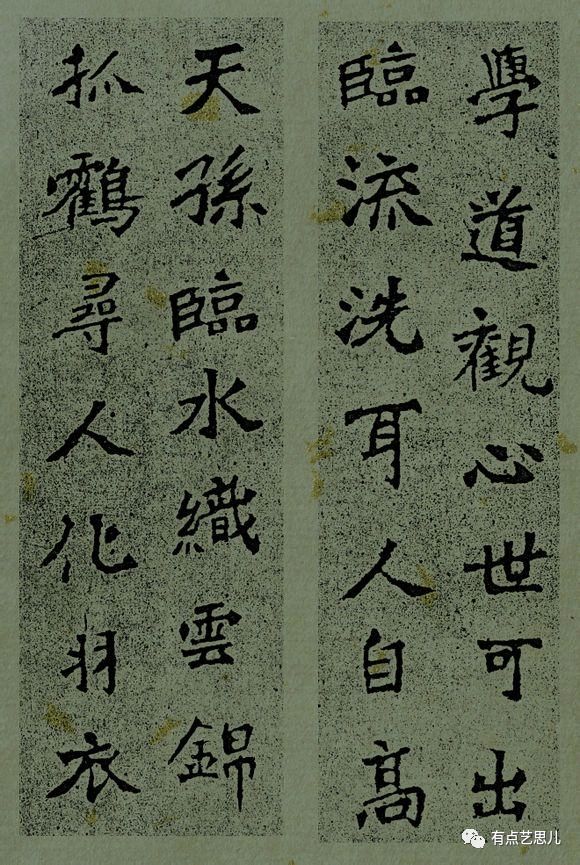 學道觀心世可出
臨流洗耳人自高
天孫臨水織雲錦
孤鶴尋人化羽衣
有点艺思儿